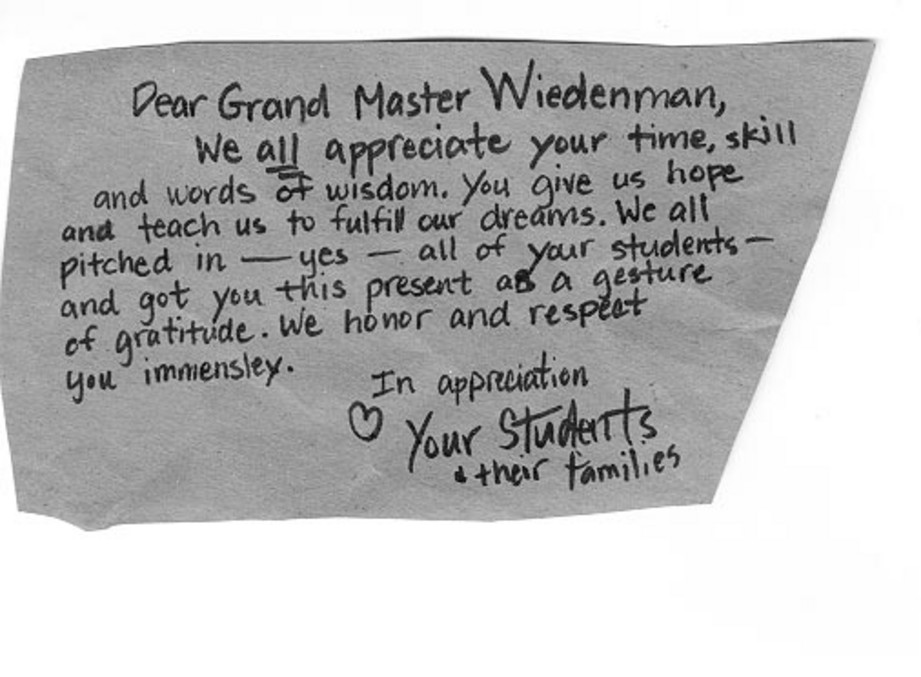 Dear Grand Master Wiedenman,
We all appreciate your time, skill
and words of wisdom. You give us hope
and teach us to fulfill our dreams. We all
pitched in — yes — all of your students —
and got you this present as a gesture
of gratitude. We honor and respect
you immensley.
In appreciation
♡ Your Students
& their families